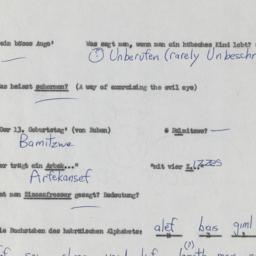 ein böses Auge"    Was sagt man, wenn man ein hübsches Kind lobt?
① Unberufen (rarely Unbeschr
as heisst schormen? (A way of exorcising the evil eye)
Der 13. Geburtstag" (von Buben)
Bamitzwe
er trägt ein Arbek..."    "mit vier Z..."izzes
Arfekansef
at man Zizesfresser gesagt? Bedeutung?
ie Buchstaben des hebräischen Alphabets: alef bais giml